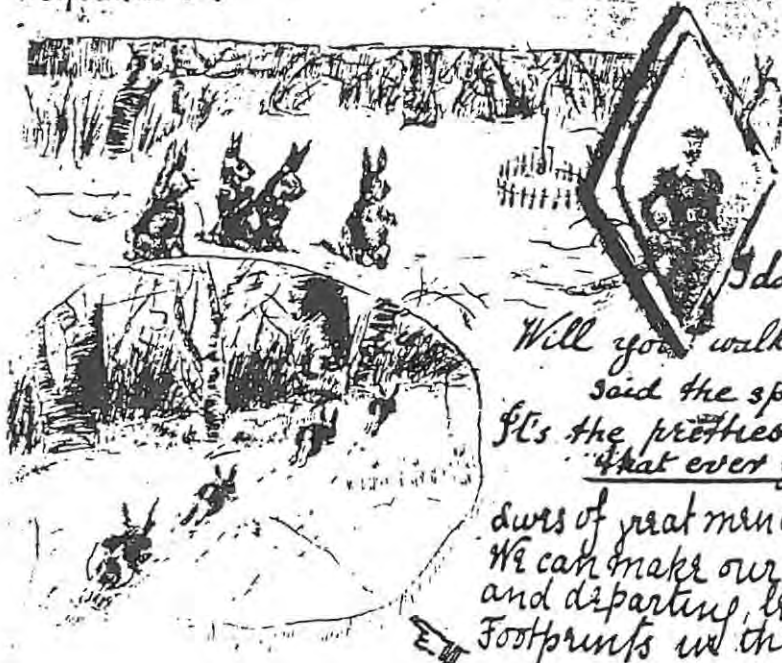 Ida
Will you walk
said the sp
It's the pretties
that ever
Lives of great men
We can make our
and departing, le
Footprints in th